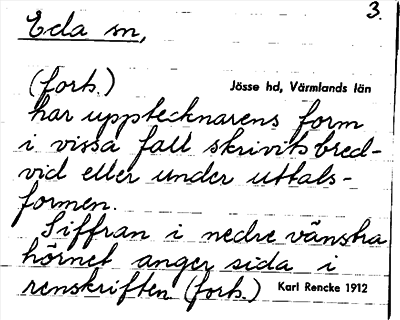 3.
Eda sn,
(forts.) Jösse hd, Värmlands län
har upptecknarens form
i vissa fall skrivits bred-
vid eller under uttals-
formen.
Siffran i nedre vänstra
hörnet anger sida i
renskriften. (forts.) Karl Rencke 1912